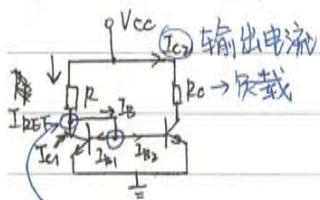 Vcc
Ic2 输出电流
R
Rc → 负载
IREF
IB
Ic1
IB1
IB2